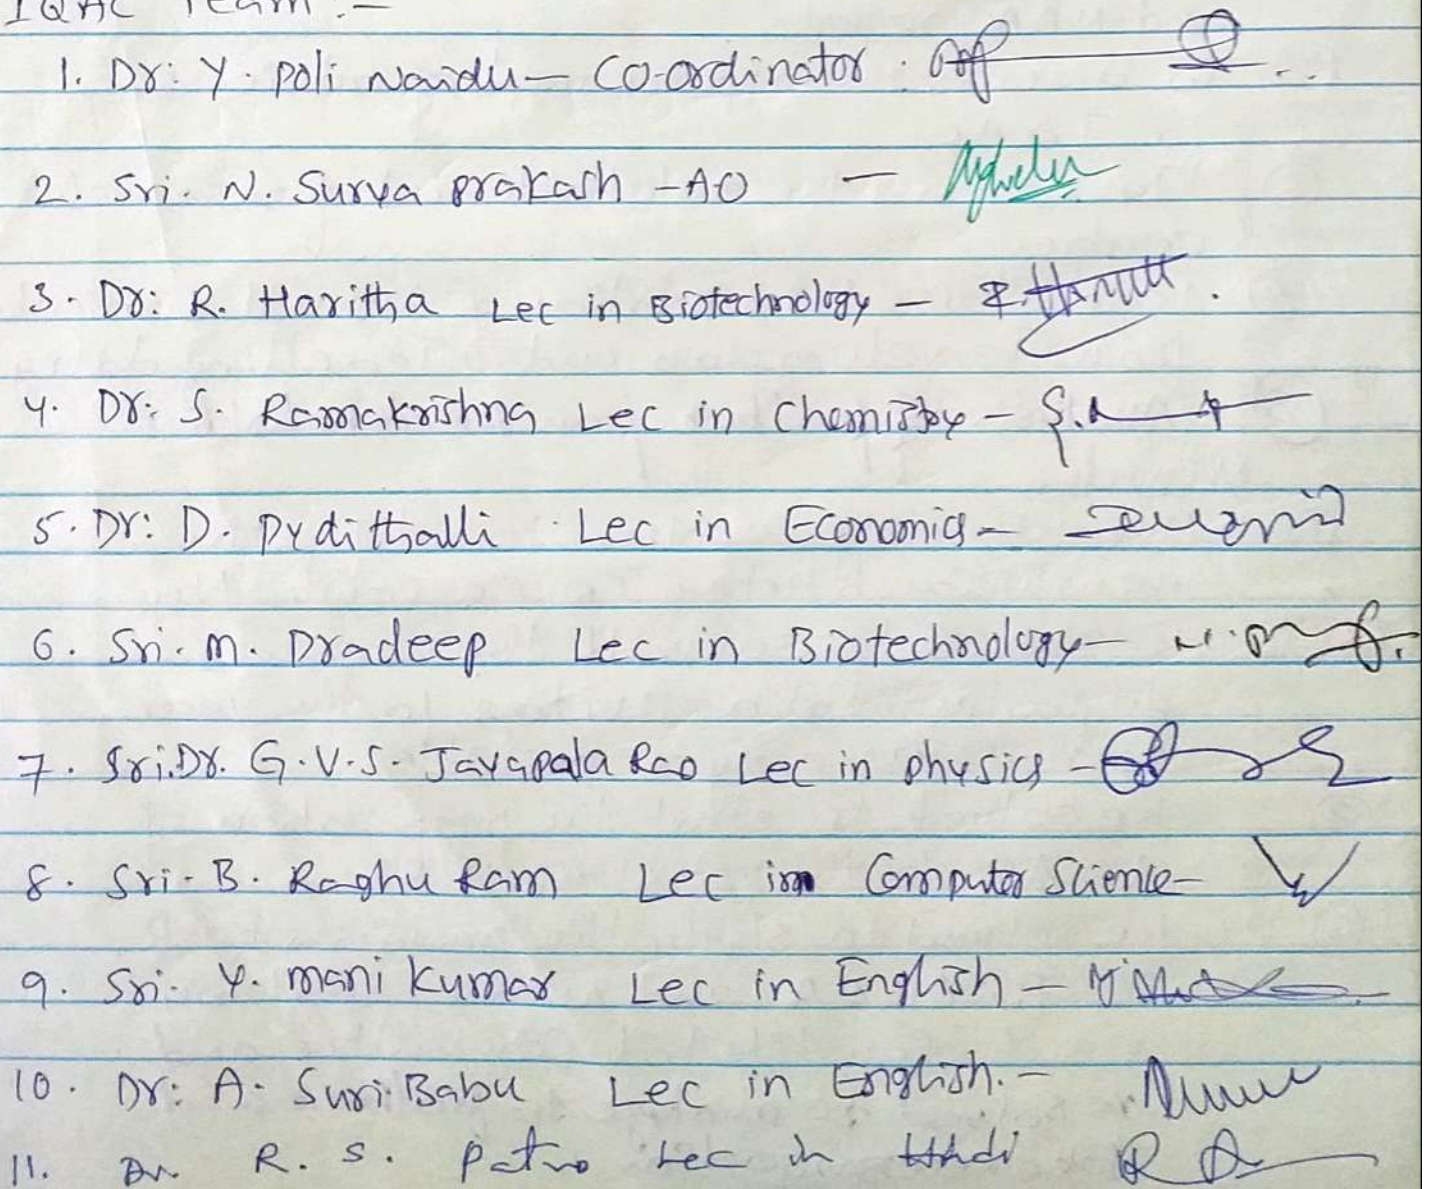 IQAC Team :-
1. Dr: Y. Poli Naidu - Co-ordinator .
2. Sri. N. Surya Prakash - AO -
3. Dr: R. Haritha Lec in Biotechnology -
4. Dr: S. Ramakrishna Lec in Chemistry -
5. Dr: D. Pydithalli Lec in Economics -
6. Sri. M. Pradeep Lec in Biotechnology -
7. Sri.Dr. G.V.S. Jayapala Rao Lec in physics -
8. Sri. B. Raghu Ram Lec in Computer Science -
9. Sri. Y. Mani Kumar Lec in English -
10. Dr: A. Suri Babu Lec in English. -
11. Dr. R. S. Patro Lec in Hindi